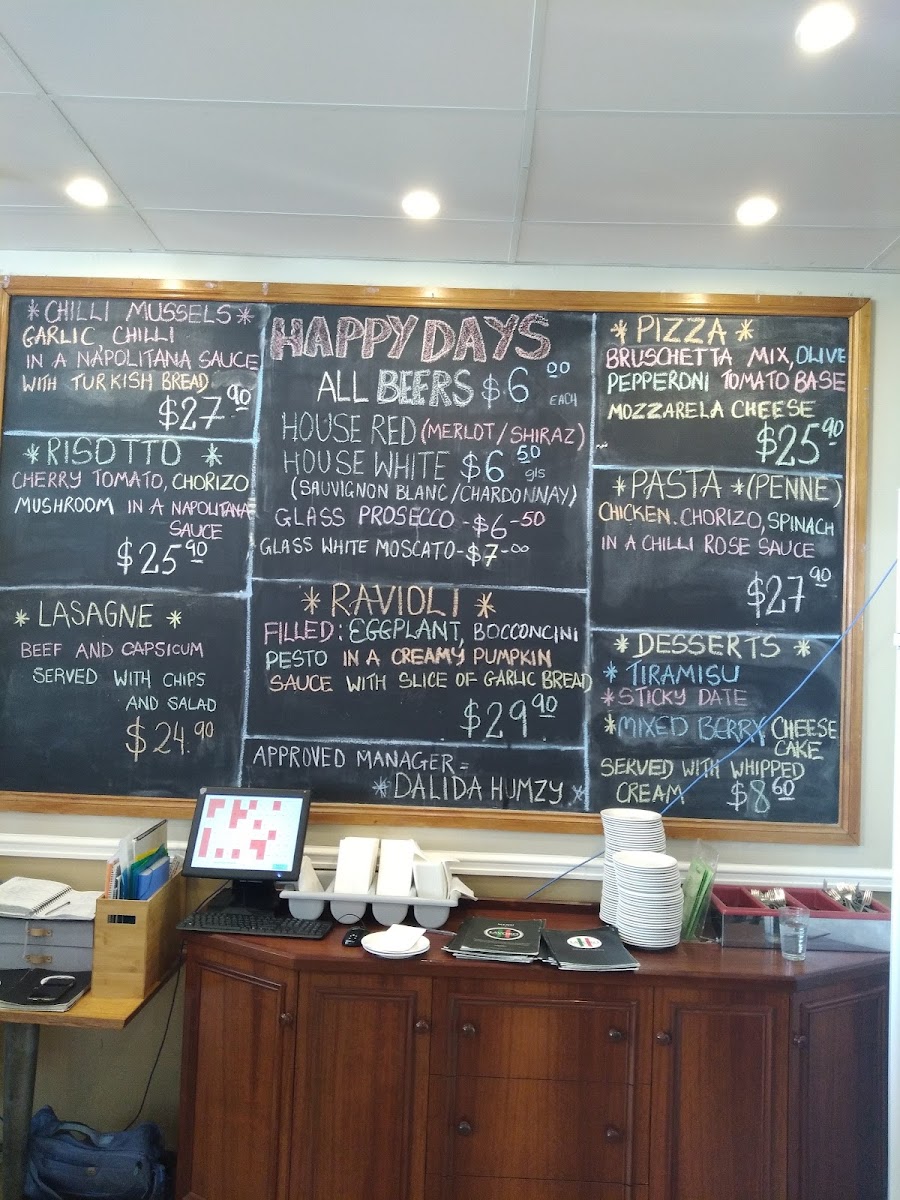 *CHILLI MUSSELS*
GARLIC CHILLI
IN A NAPOLITANA SAUCE
WITH TURKISH BREAD
$27.90
*RISOTTO *
CHERRY TOMATO, CHORIZO
MUSHROOM IN A NAPOLITANA
SAUCE
$25.90
* LASAGNE *
BEEF AND CAPSICUM
SERVED WITH CHIPS
AND SALAD
$24.90
HAPPY DAYS
ALL BEERS $6 00
EACH
HOUSE RED (MERLOT/SHIRAZ)
HOUSE WHITE $6 50 gls
(SAUVIGNON BLANC/CHARDONNAY)
GLASS PROSECCO-$6-50
GLASS WHITE MOSCATO-$7-00
* RAVIOLI *
FILLED: EGGPLANT, BOCCONCINI
PESTO IN A CREAMY PUMPKIN
SAUCE WITH SLICE OF GARLIC BREAD
$29 90
APPROVED MANAGER =
*DALIDA HUMZY *
* PIZZA *
BRUSCHETTA MIX, OLIVE
PEPPERONI TOMATO BASE
MOZZARELA CHEESE
$25 90
*PASTA *(PENNE)
CHICKEN. CHORIZO, SPINACH
IN A CHILLI ROSE SAUCE
$27 90
*DESSERTS *
* TIRAMISU
*STICKY DATE
*MIXED BERRY CHEESE
CAKE
SERVED WITH WHIPPED
CREAM $8 60